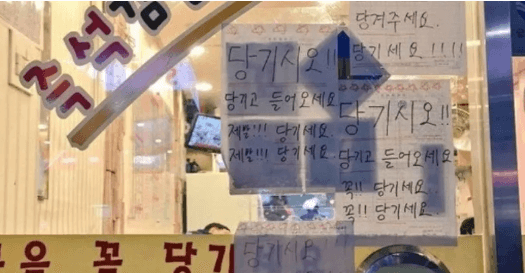 즉석
당겨주세요.
당기세요!!!!
당기시오!!
당기고 들어오세요
제발!!! 당기세요.
제발!!! 당기세요.
당기시오!!
당기고 들어오세요
꼭!! 당기세요.
꼭!! 당기세요.
당기시오!!
을 꼭 당기